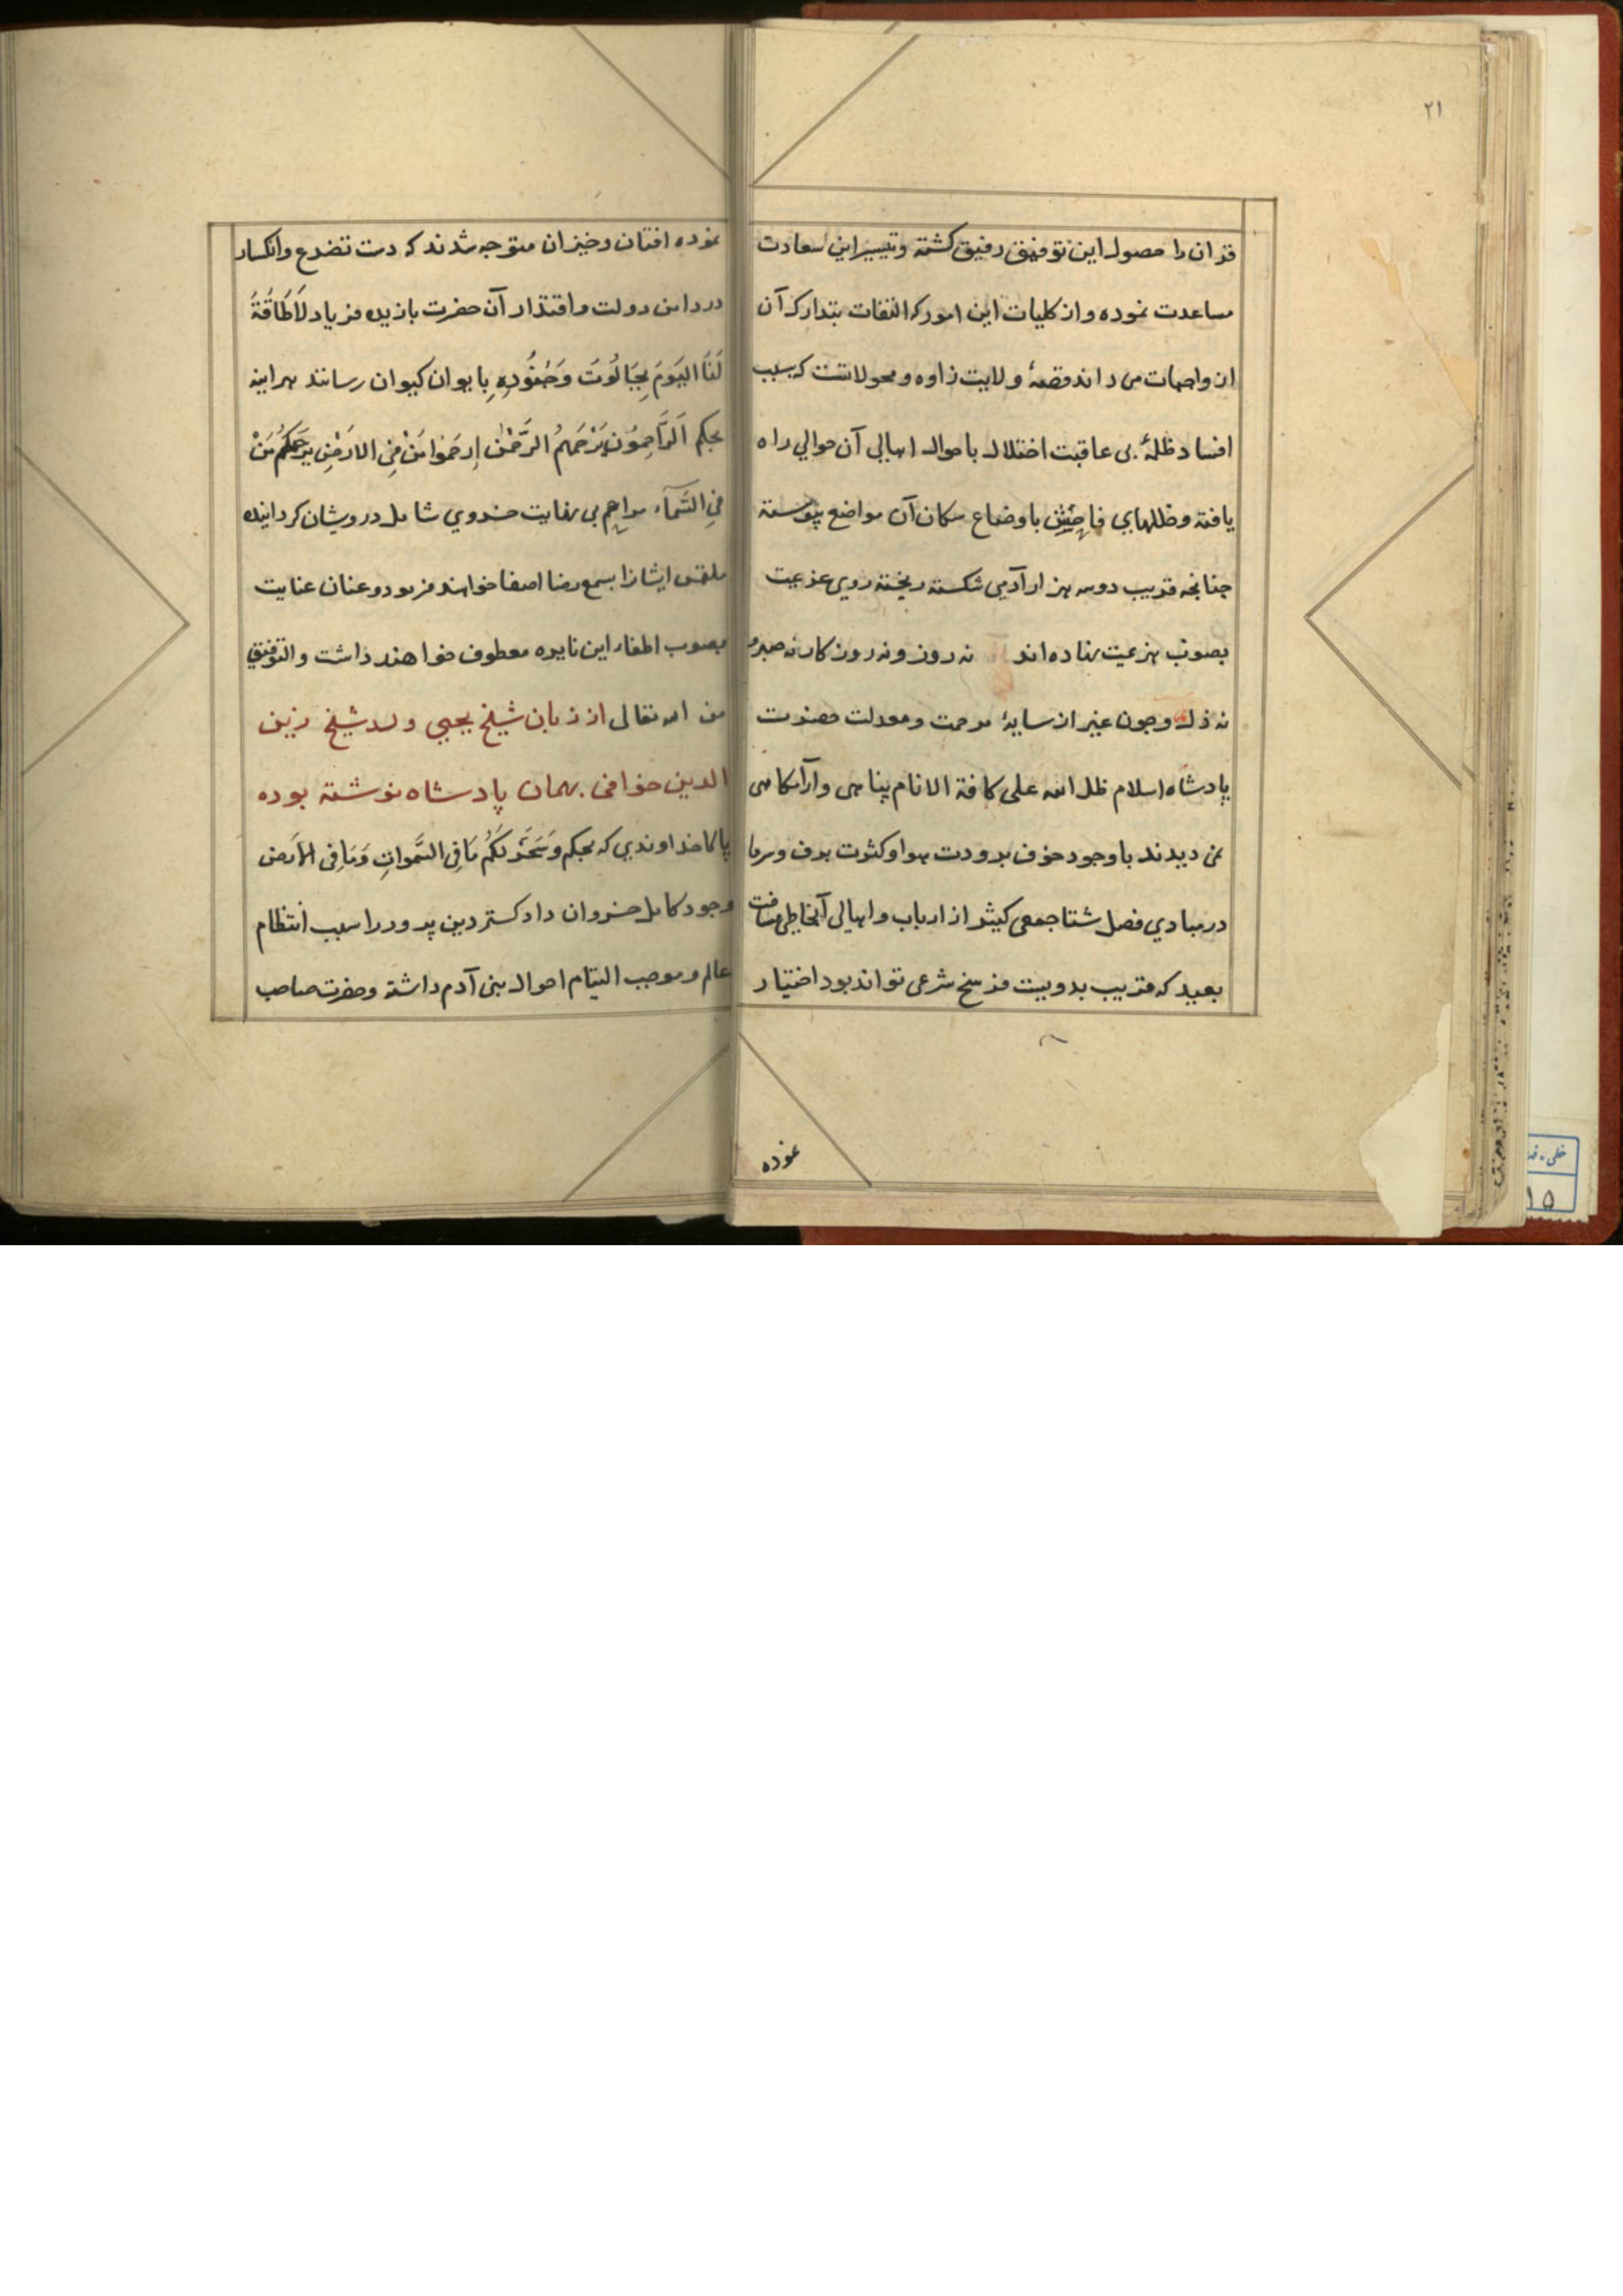 ۲۱
قران را حصول این توفیق رفیق کشته و تیسیر این سعادت
مساعدت نموده و از کلیات این امور که التفات بتدارک آن
از واجبات می داند قصهٔ ولایت زاوه و محولاتست که بسبب
افساد ظلمهٔ بی عاقبت اختلال باحوال اهالی آن حوالی راه
یافته و ظلمهای فاحش باوضاع سکان آن مواضع پیوسته
جنانجه قریب دو سه هزار آدمی شکسته ریخته روی عزیمت
بصوب هزیمت نهاده اند نه روز و نه روز کار نه صبر و
نه دل وجون غیر از سایهٔ مرحمت و معدلت حضرت
پادشاه اسلام ظل الله علی کافة الانام پناهی و آرامکاهی
نمی دیدند با وجود خوف برودت هوا و کثرت برف و سرما
در مبادی فصل شتا جمعی کثیر از ارباب و اهالی آنجا طی مسافت
بعید که قریب بدو بیست فرسخ شرعی تواند بود اختیار
نموده
نموده افتان وخیزان متوجه شدند که دست تضرع وانکسار
در دامن دولت واقتدار آن حضرت بازیده فریاد لَا طَاقَةَ
لَنَا الیَومَ بِجَالُوتَ وَجُنُودِهِ بایوان کیوان رسانند هراینه
بحکم اَلرَّاحِمُونَ یَرْحَمُهُمُ الرَّحْمٰن اِرحَمُوا مَنْ فِی الارَضِ یَرحَمْکُمْ مَنْ
فِی السَّمآء مراحم بی نهایت خسروی شامل درویشان کردانیده
ملتمس ایشانرا بسمع رضا اصغا خواهند فرمود و عنان عنایت
بصوب اطفاء این نایره معطوف خواهند داشت والتوفیق
من الله تعالی از زبان شیخ یحیی ولد شیخ زین
الدین خوافی بهمان پادشاه نوشته بوده
پاکا خداوندی که بحکم وَسَخَّرَ لَکُمْ مَا فِی السَّمواتِ وَمَا فِی الاَرَضِ
وجود کامل خسروان داد کستر دین پرور را سبب انتظام
عالم و موجب التیام احوال بنی آدم داشته وحضرت صاحب
۱۵